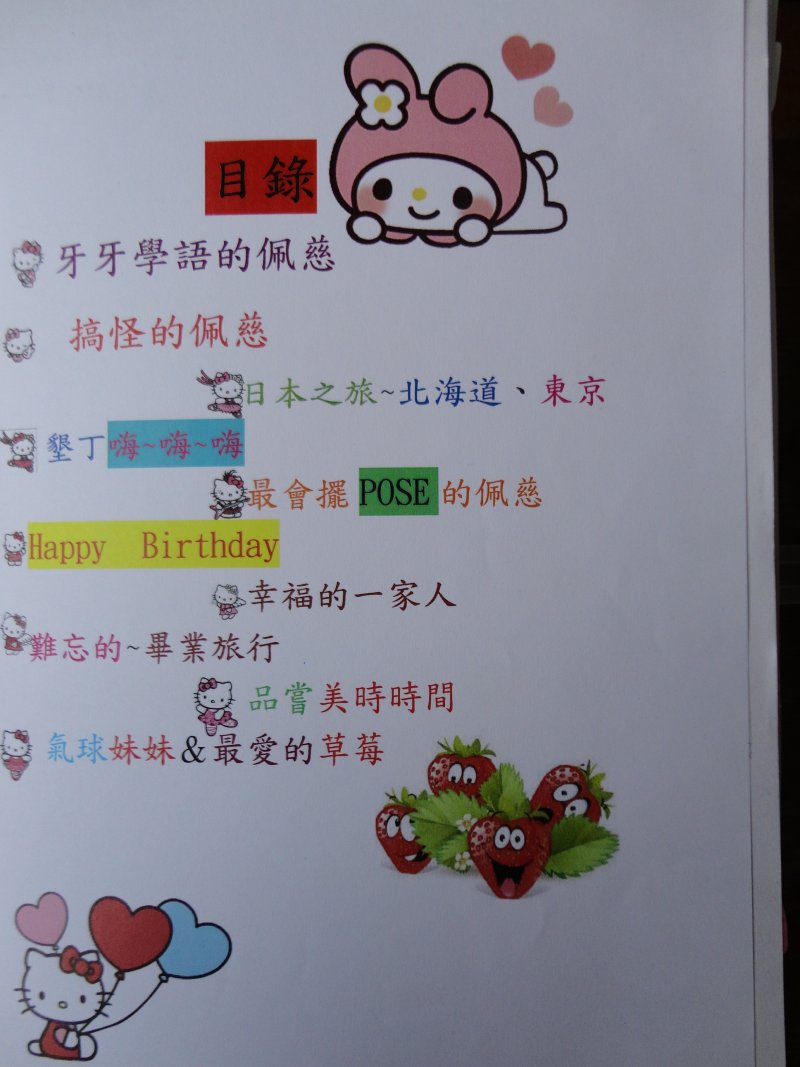 目錄
牙牙學語的佩慈
搞怪的佩慈
日本之旅~北海道、東京
墾丁嗨~嗨~嗨
最會擺POSE的佩慈
Happy Birthday
幸福的一家人
難忘的~畢業旅行
品嘗美時時間
氣球妹妹&最愛的草莓